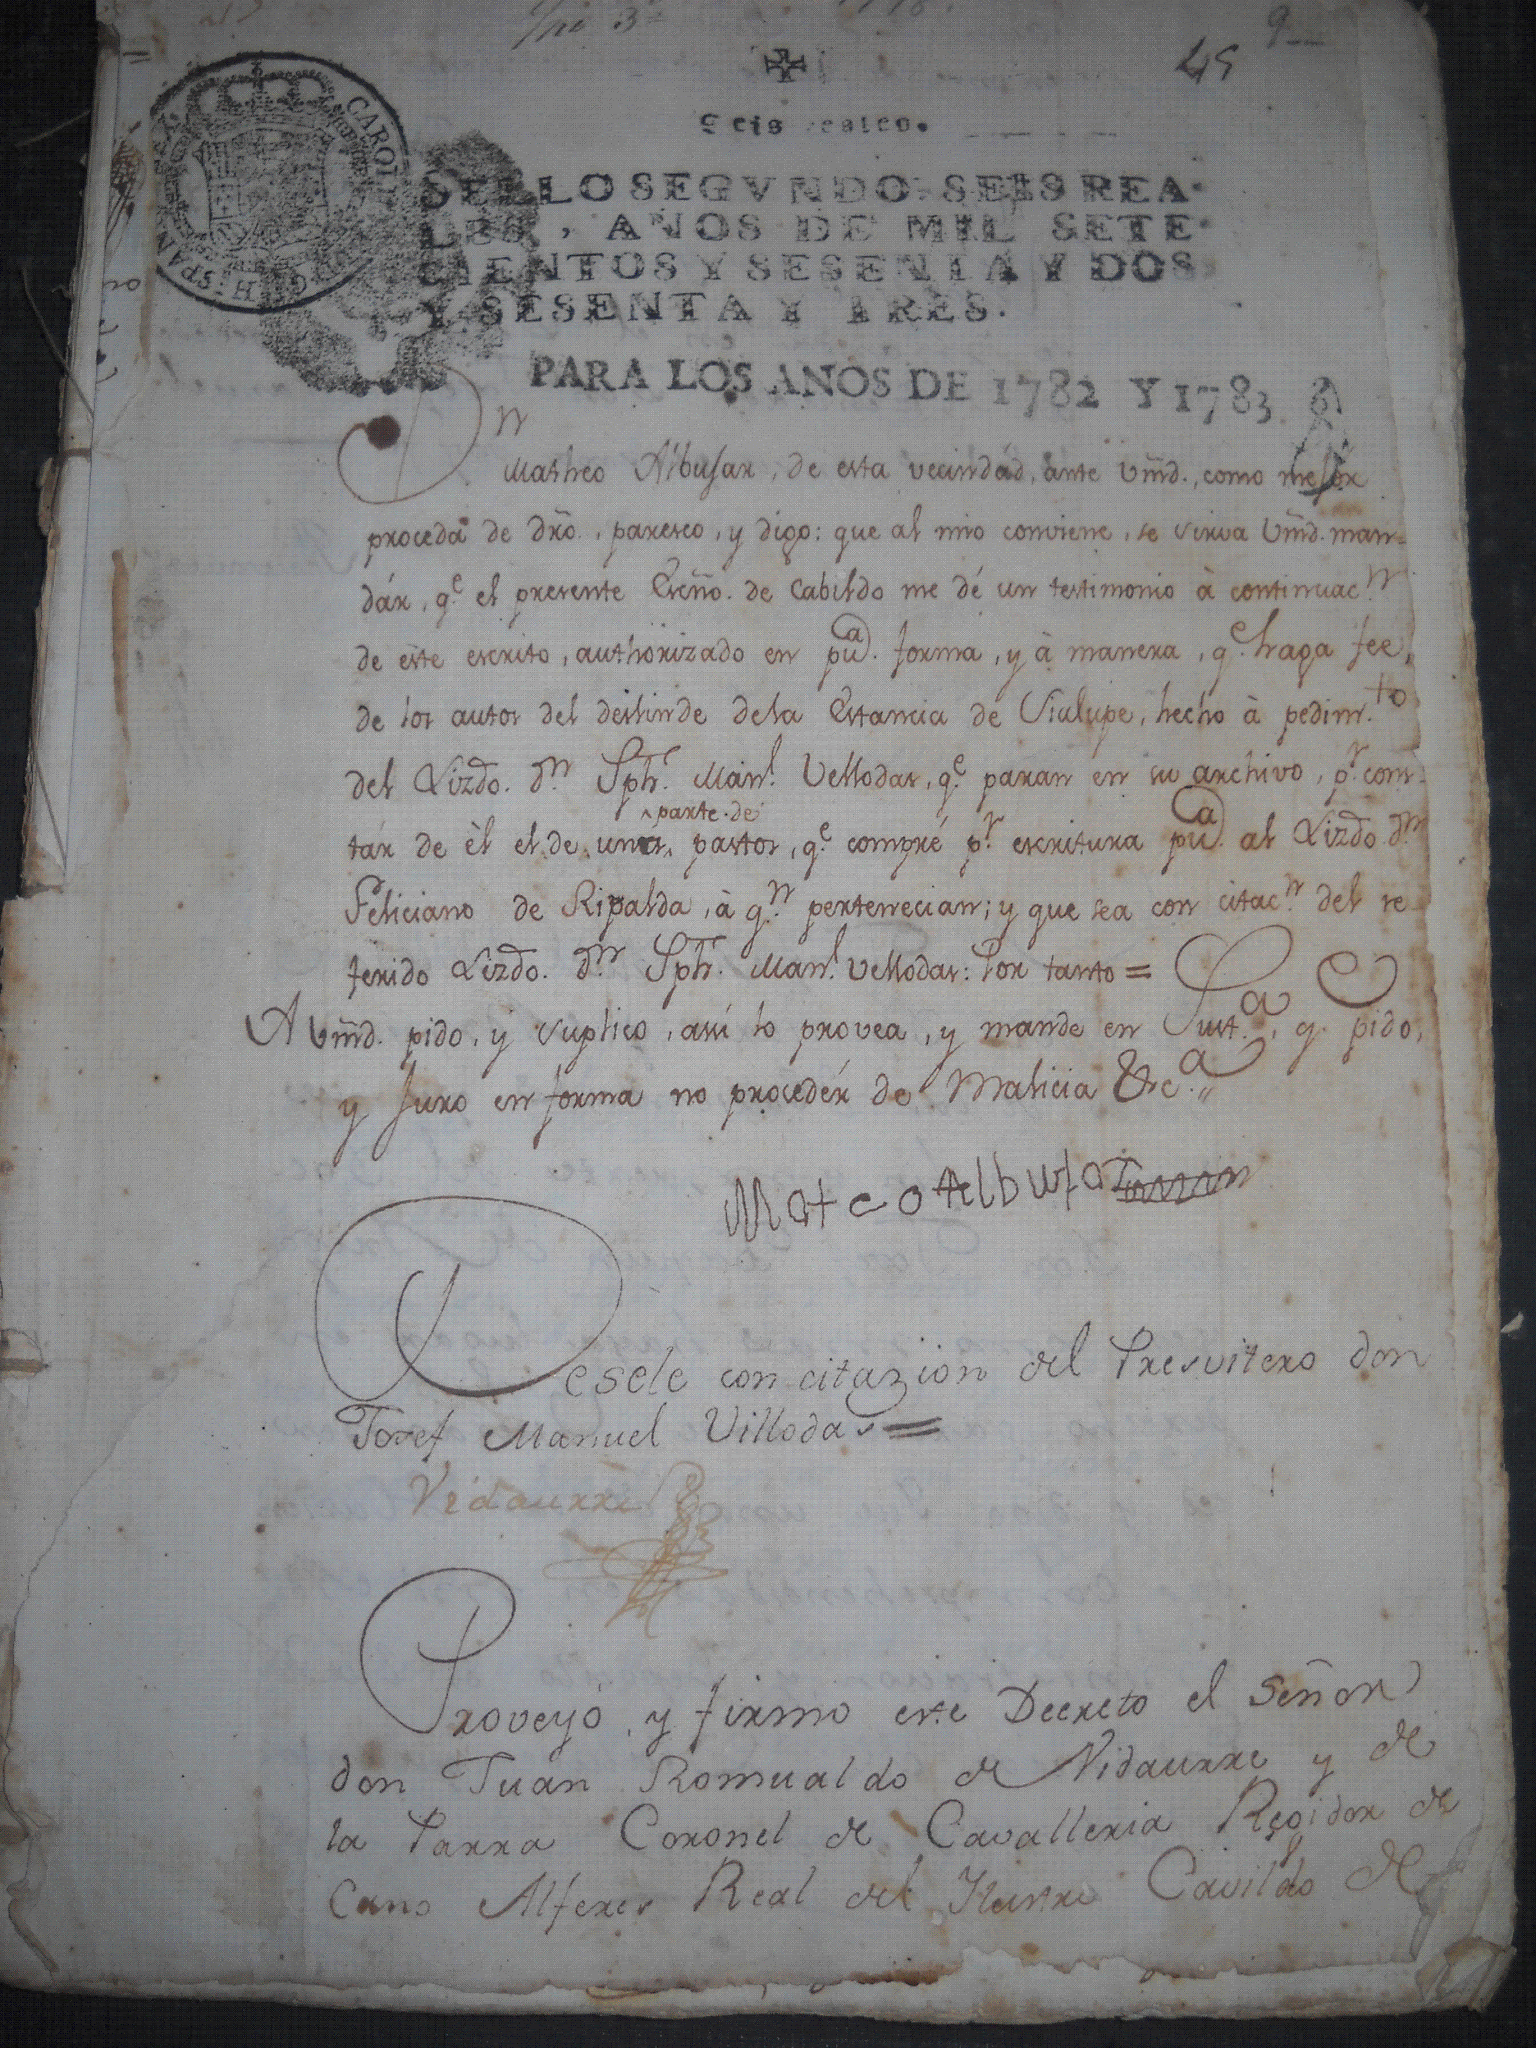 45
9
Seis reales.
CAROL
HISPAN
SELLO SEGVNDO. SEIS REA-
LES, AÑOS DE MIL SETE-
CIENTOS Y SESENTA Y DOS
Y SESENTA Y TRES.
PARA LOS ANOS DE 1782 Y 1783
Dn
Matheo Albusar, de esta vecindád, ante Vm̃d., como mejór
proceda de dr̃o., paresco, y digo: que al mio conviene, se sirva Vm̃d. man-
dár, q.e el presente Escño. de Cabildo me dé un testimonio à continuac.n
de este escrito, authorizado en pu.a forma, y à manera, q.e haga fee,
de los autos del deslinde dela Estancia de Vialupe, hecho à pedim.to
del Lizdo. d.n Jph. Man.l Vellodas, q.e paran en su archivo, p.r cons-
parte de
tár de èl el de unos pastos, q.e compré p.r escritura pu.a al Lizdo. d.n
Feliciano de Ripalda, à q.n pertenecian; y que sea con citac.n del re
ferido Lizdo. d.n Jph. Man.l Vellodas: Por tanto =
A Vm̃d. pido, y suplico, así lo provea, y mande en Just.a, q.e pido,
y Juro en forma no procedér de Malicia &c.a
Mateo Albusar
Desele con citazion del Presvitero don
Josef Manuel Villodas =
Vidaurre
Proveyó, y firmo este Decreto el Señor
don Juan Romualdo de Vidaurre y de
la Parra Coronel de Cavalleria Regidor de
Cano Alferes Real del Ilustre Cavildo de